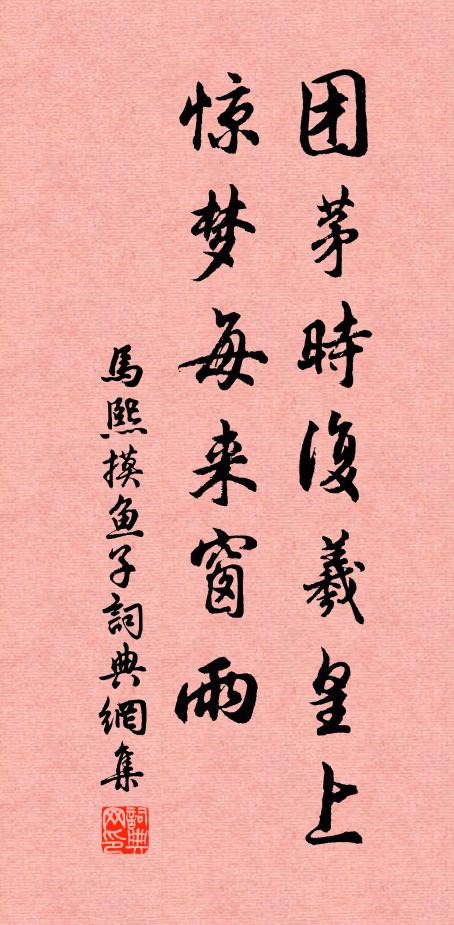 团茅時復羲皇上
惊梦每来窗雨
馬熙摸鱼子詞典網集
詞典网印